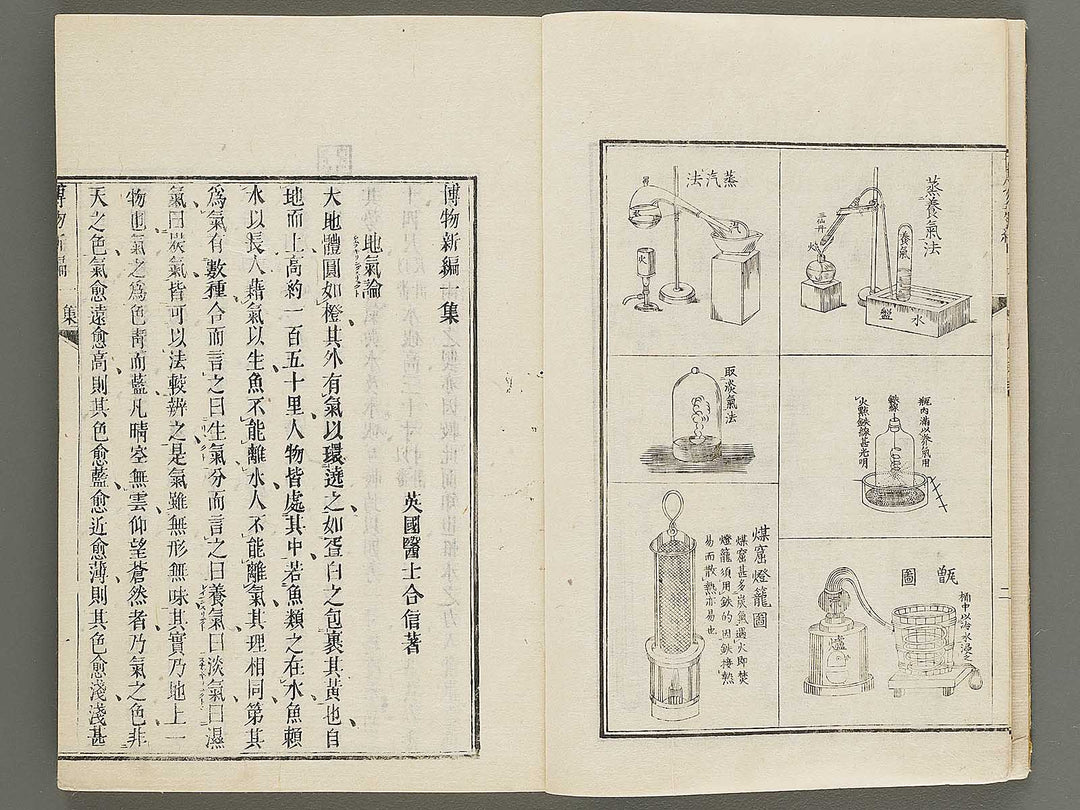 蒸養氣法
養氣
三仙丹
爐
水
盤
蒸汽法
汽
火
瓶內滿以養氣用
鉄線
火㸃鉄線甚光明
取淡氣法
甑圖
桶中以冷水浸之
爐
煤窟燈籠圖
煤窟甚多炭氣遇火即焚
燈籠須用鉄的因鉄接熱
易而散熱亦易也
二
博物新編一集
英國醫士合信著
地氣論
大地體圓如橙其外有氣以環遶之如蛋白之包裹其黃也自
地而上高約一百五十里人物皆處其中若魚類之在水魚賴
水以長人藉氣以生魚不能離水人不能離氣其理相同第其
爲氣有數種合而言之曰生氣分而言之曰養氣曰淡氣曰濕
氣曰炭氣皆可以法較辨之是氣雖無形無味其實乃地上一
物也氣之爲色靑而藍凡晴空無雲仰望蒼然者乃氣之色非
天之色氣愈遠愈高則其色愈藍愈近愈薄則其色愈淺淺甚
博物新編 一集